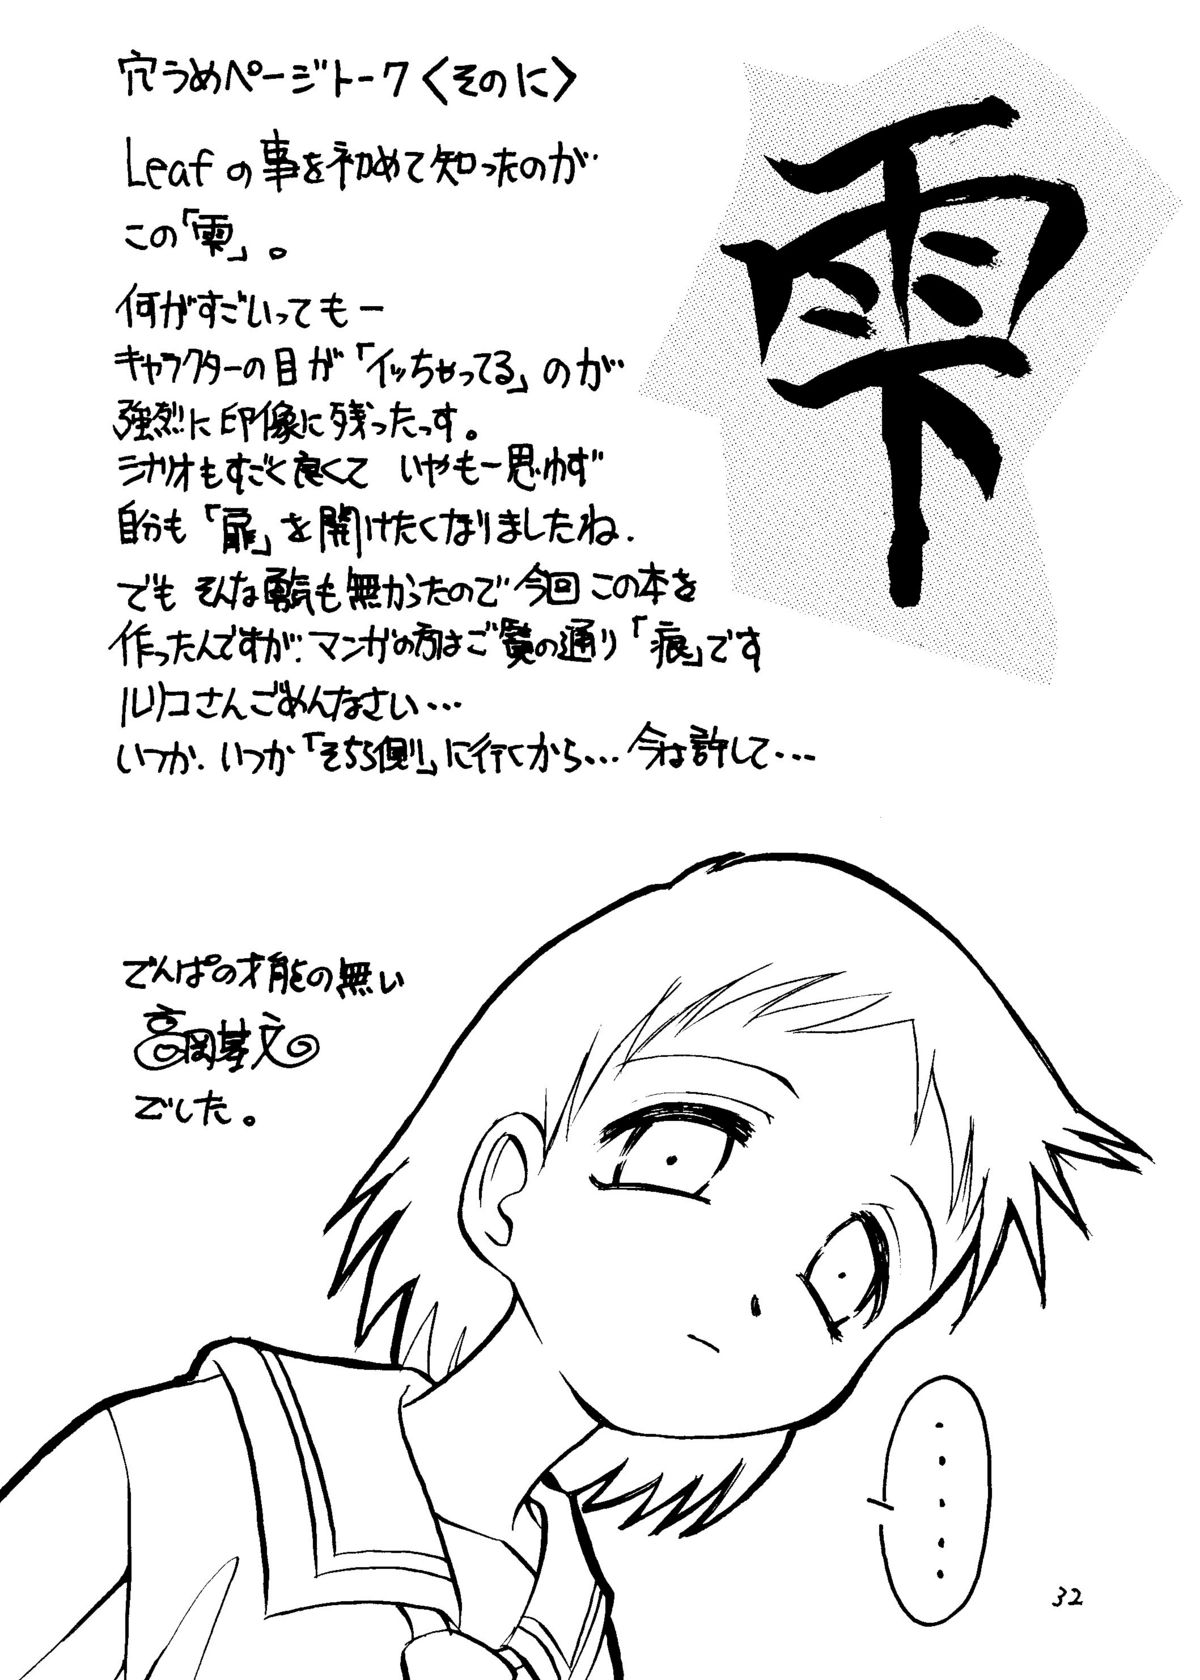 穴うめページトーク〈そのに〉
雫
Leafの事を初めて知ったのが
この「雫」。
何がすごいってもー
キャラクターの目が「イッちゃってる」のが
強烈に印像に残ったっす。
シナリオもすごく良くて いやもー思わず
自分も「扉」を開けたくなりましたね.
でも そんな勇気も無かったので今回この本を
作ったんですが.マンガの方はご覧の通り「痕」です
ルリコさんごめんなさい・・・
いつか. いつか「そちら側」に行くから・・・今は許して・・・
でんぱの才能の無い
高岡基文
でした。
・・・・・
32